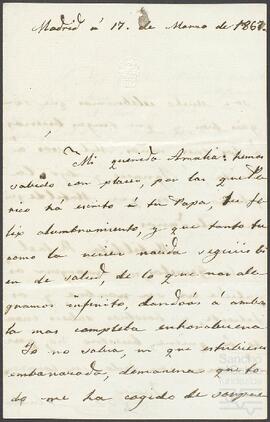 Madrid á 17. de Marzo de 186
Mi querida Amalia: hemos
sabido con placer, por las que Pe
rico há escrito á tu Papa, tu fe
liz alumbramiento, y que tanto tu
como la recien nacida seguiis bi
en de salud, de lo que nos ale
gramos infinito, dandoos á ambas
la mas completa enhorabuena
Yo no sabia, ni que estubieras
embarazada, demanera que to
do me ha cogido de sorpre